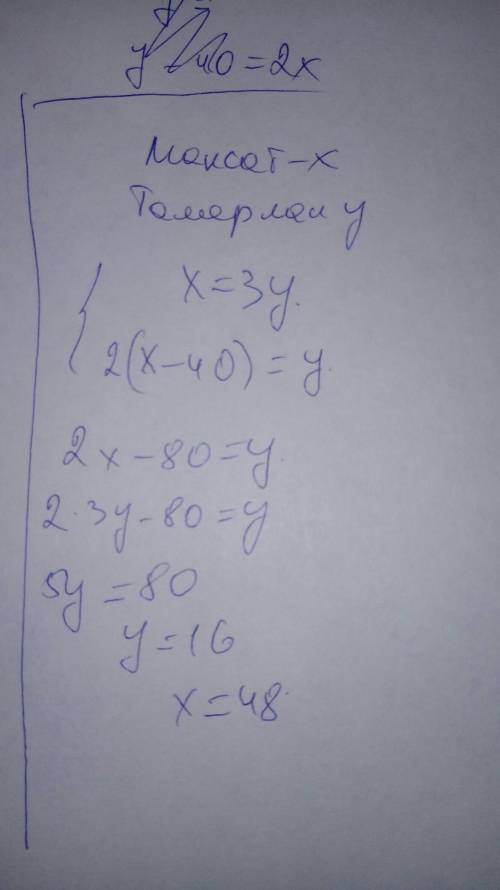 y 40 = 2x
Максат - x
Тамерлан y
{ x = 3y.
2(x - 40) = y.
2x - 80 = y.
2·3y - 80 = y
5y = 80
y = 16
x = 48.